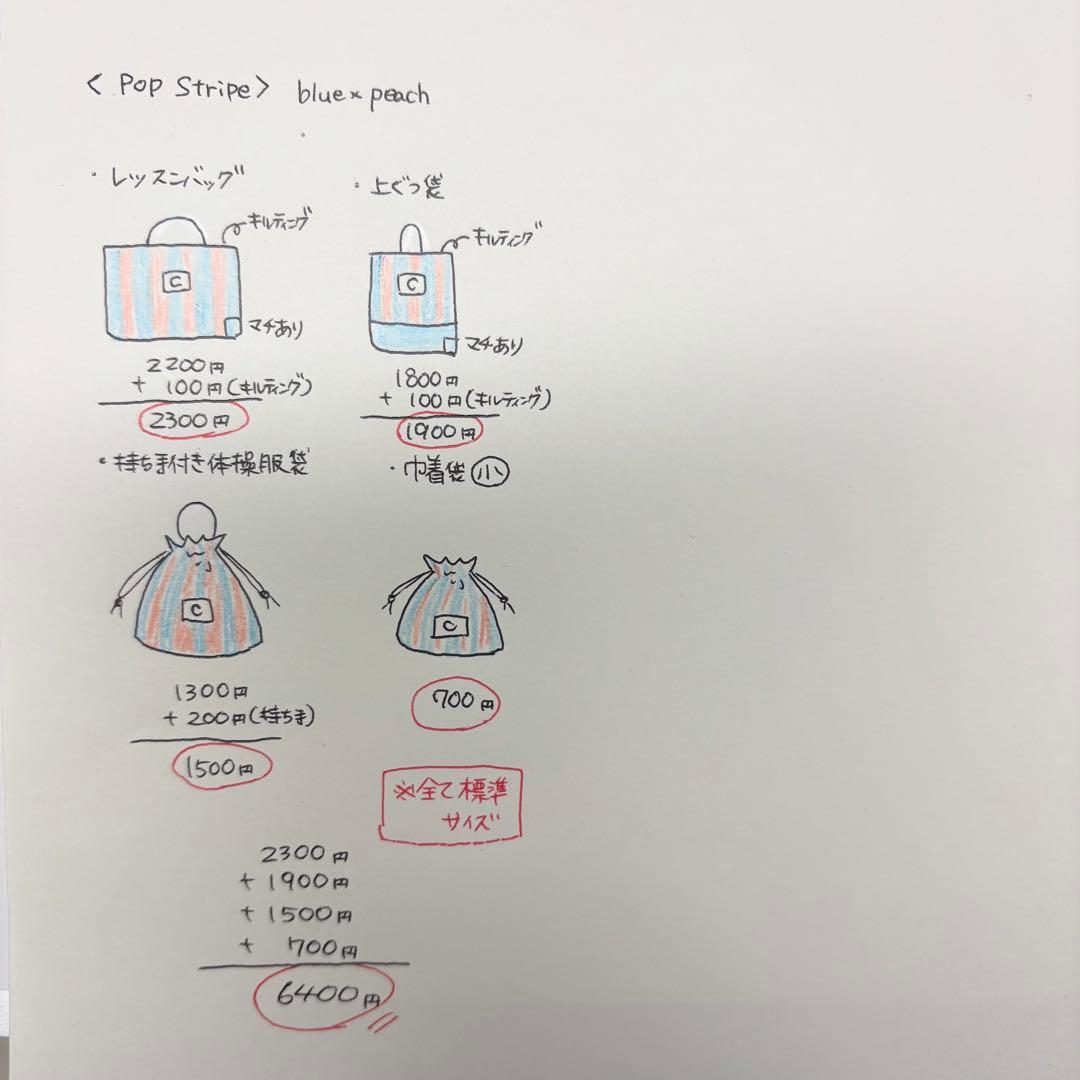 < Pop Stripe> blue×peach
・レッスンバッグ
キルティング
C
マチあり
2200円
+ 100円(キルティング)
2300円
・上ぐつ袋
キルティング
C
マチあり
1800円
+ 100円(キルティング)
1900円
・持ち手付き体操服袋
C
1300円
+ 200円(持ち手)
1500円
・巾着袋 小
C
700円
※全て標準
サイズ
2300円
+ 1900円
+ 1500円
+ 700円
6400円